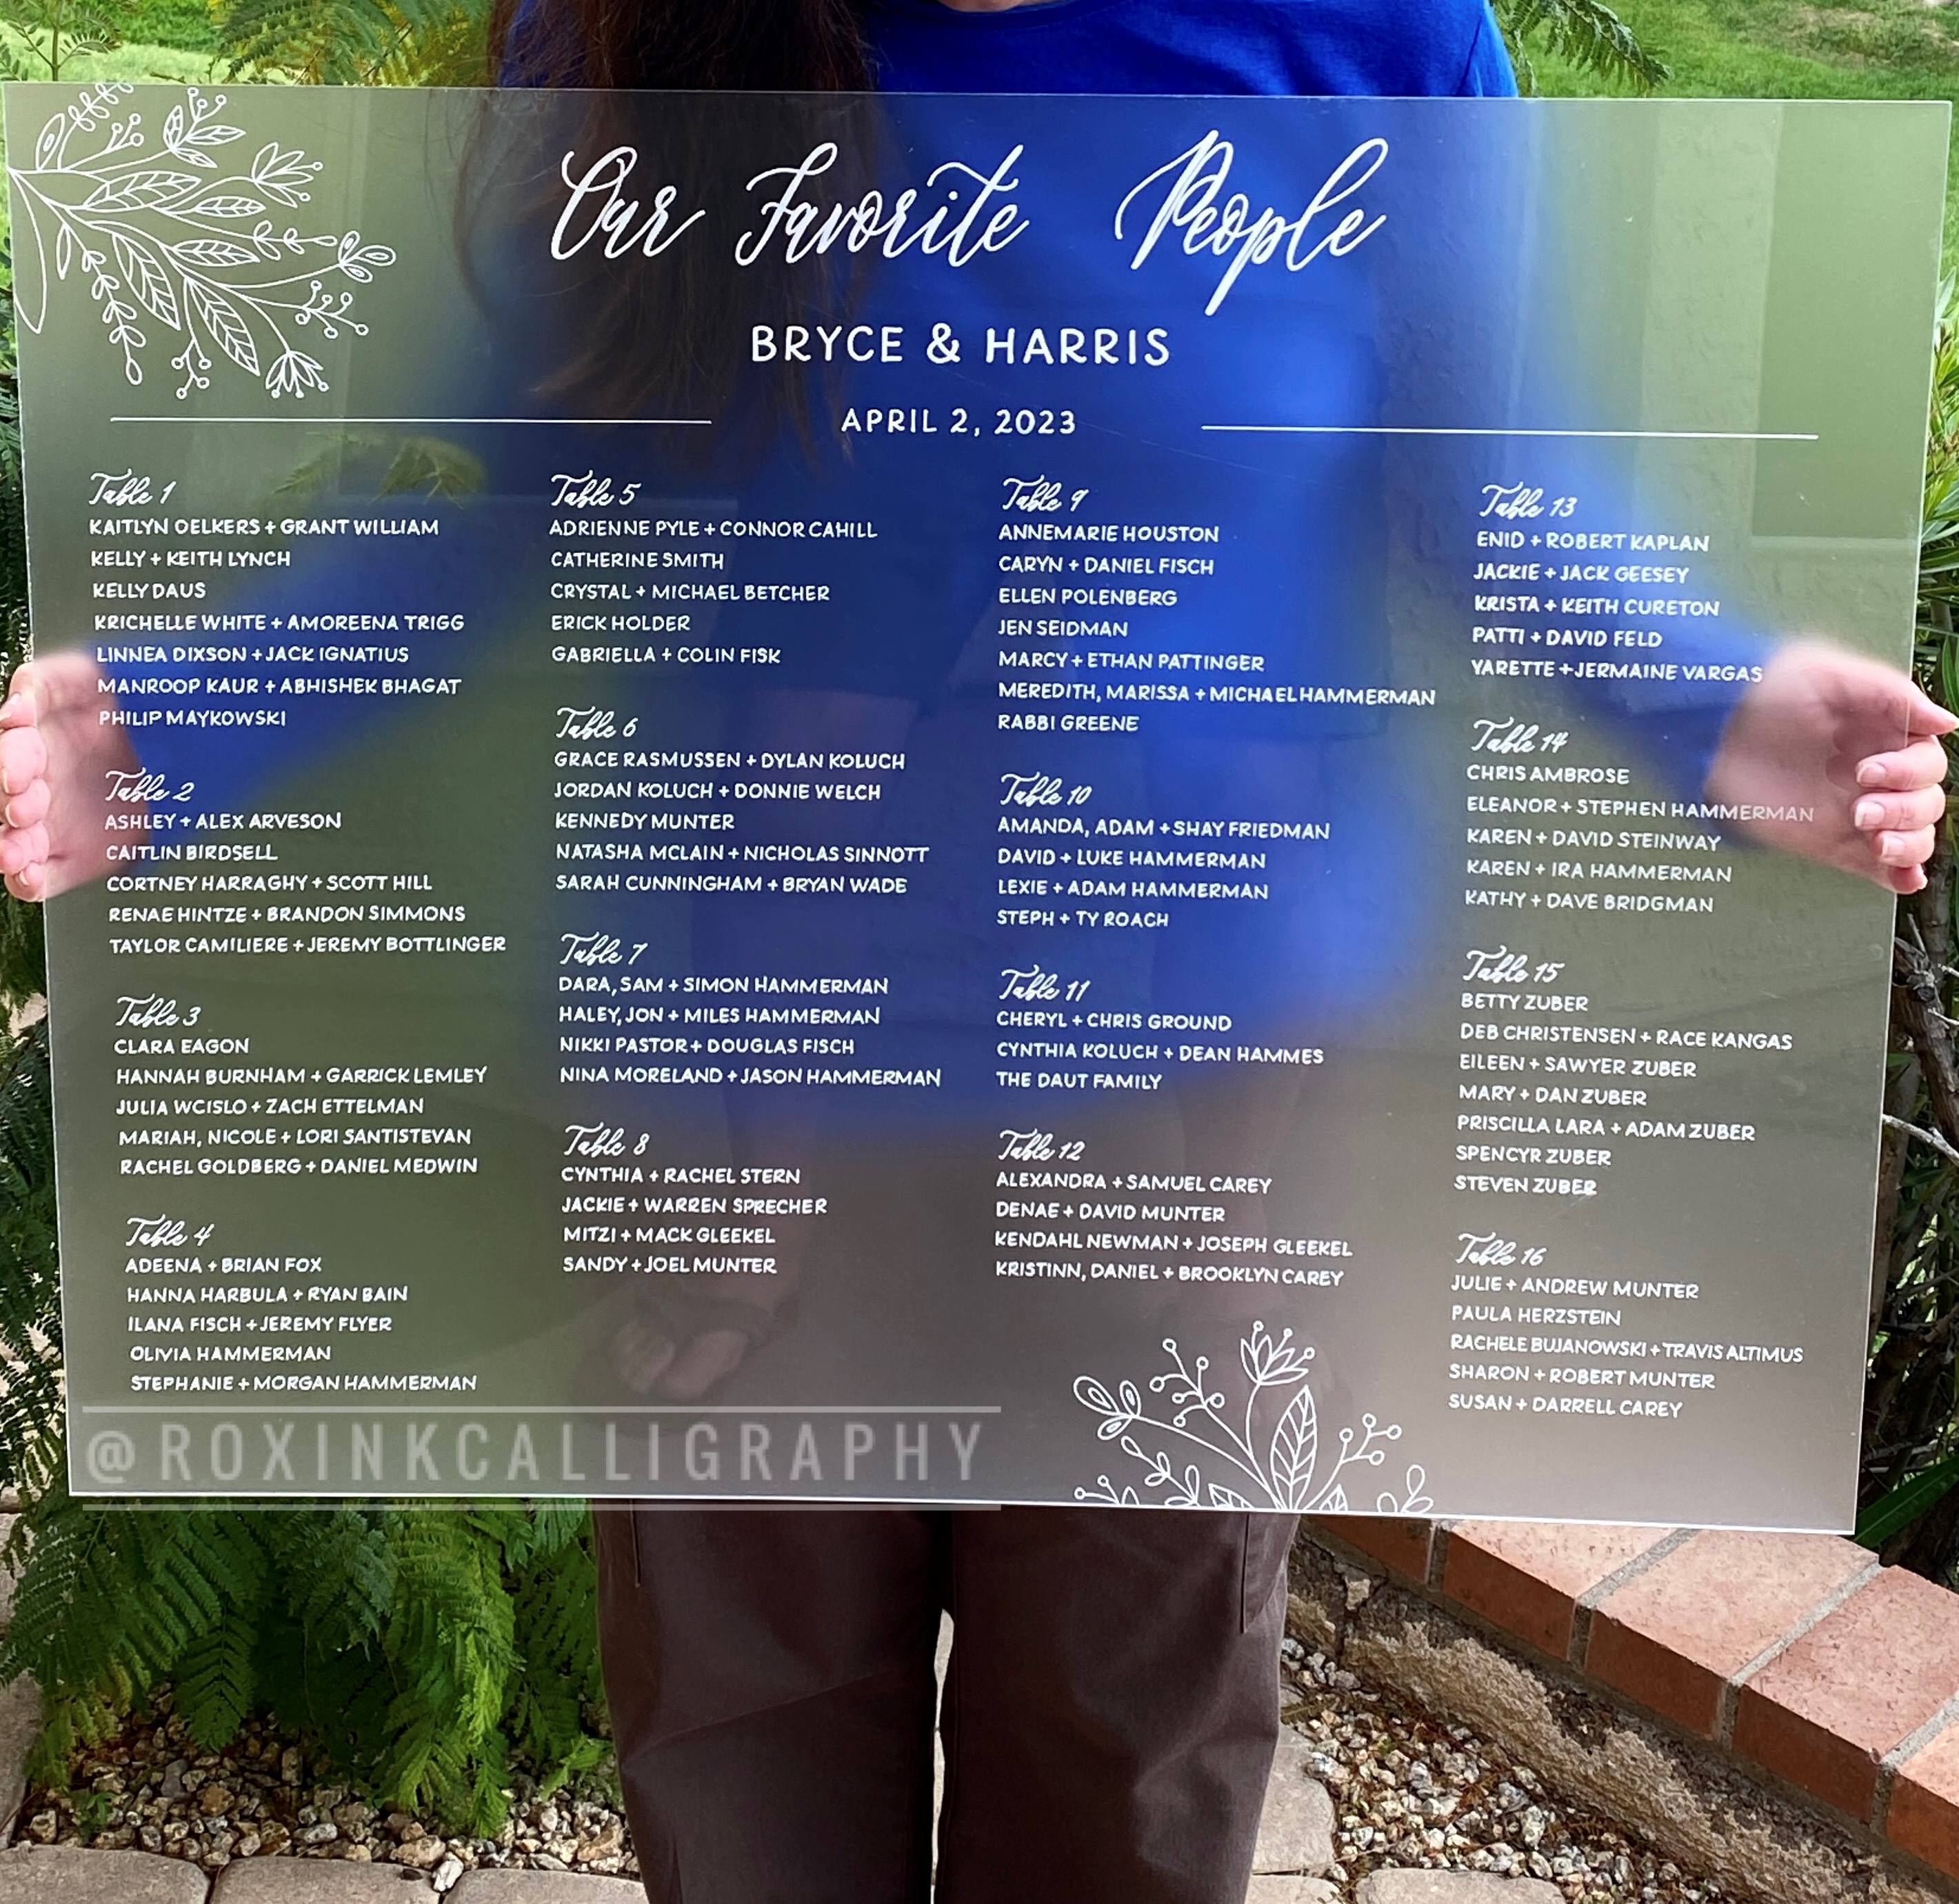 Our Favorite People
BRYCE & HARRIS
APRIL 2, 2023
Table 1
KAITLYN OELKERS + GRANT WILLIAM
KELLY + KEITH LYNCH
KELLY DAUS
KRICHELLE WHITE + AMOREENA TRIGG
LINNEA DIXSON + JACK IGNATIUS
MANROOP KAUR + ABHISHEK BHAGAT
PHILIP MAYKOWSKI
Table 2
ASHLEY + ALEX ARVESON
CAITLIN BIRDSELL
CORTNEY HARRAGHY + SCOTT HILL
RENAE HINTZE + BRANDON SIMMONS
TAYLOR CAMILIERE + JEREMY BOTTLINGER
Table 3
CLARA EAGON
HANNAH BURNHAM + GARRICK LEMLEY
JULIA WCISLO + ZACH ETTELMAN
MARIAH, NICOLE + LORI SANTISTEVAN
RACHEL GOLDBERG + DANIEL MEDWIN
Table 4
ADEENA + BRIAN FOX
HANNA HARBULA + RYAN BAIN
ILANA FISCH + JEREMY FLYER
OLIVIA HAMMERMAN
STEPHANIE + MORGAN HAMMERMAN
Table 5
ADRIENNE PYLE + CONNOR CAHILL
CATHERINE SMITH
CRYSTAL + MICHAEL BETCHER
ERICK HOLDER
GABRIELLA + COLIN FISK
Table 6
GRACE RASMUSSEN + DYLAN KOLUCH
JORDAN KOLUCH + DONNIE WELCH
KENNEDY MUNTER
NATASHA MCLAIN + NICHOLAS SINNOTT
SARAH CUNNINGHAM + BRYAN WADE
Table 7
DARA, SAM + SIMON HAMMERMAN
HALEY, JON + MILES HAMMERMAN
NIKKI PASTOR + DOUGLAS FISCH
NINA MORELAND + JASON HAMMERMAN
Table 8
CYNTHIA + RACHEL STERN
JACKIE + WARREN SPRECHER
MITZI + MACK GLEEKEL
SANDY + JOEL MUNTER
Table 9
ANNEMARIE HOUSTON
CARYN + DANIEL FISCH
ELLEN POLENBERG
JEN SEIDMAN
MARCY + ETHAN PATTINGER
MEREDITH, MARISSA + MICHAEL HAMMERMAN
RABBI GREENE
Table 10
AMANDA, ADAM + SHAY FRIEDMAN
DAVID + LUKE HAMMERMAN
LEXIE + ADAM HAMMERMAN
STEPH + TY ROACH
Table 11
CHERYL + CHRIS GROUND
CYNTHIA KOLUCH + DEAN HAMMES
THE DAUT FAMILY
Table 12
ALEXANDRA + SAMUEL CAREY
DENAE + DAVID MUNTER
KENDAHL NEWMAN + JOSEPH GLEEKEL
KRISTINN, DANIEL + BROOKLYN CAREY
Table 13
ENID + ROBERT KAPLAN
JACKIE + JACK GEESEY
KRISTA + KEITH CURETON
PATTI + DAVID FELD
YARETTE + JERMAINE VARGAS
Table 14
CHRIS AMBROSE
ELEANOR + STEPHEN HAMMERMAN
KAREN + DAVID STEINWAY
KAREN + IRA HAMMERMAN
KATHY + DAVE BRIDGMAN
Table 15
BETTY ZUBER
DEB CHRISTENSEN + RACE KANGAS
EILEEN + SAWYER ZUBER
MARY + DAN ZUBER
PRISCILLA LARA + ADAM ZUBER
SPENCYR ZUBER
STEVEN ZUBER
Table 16
JULIE + ANDREW MUNTER
PAULA HERZSTEIN
RACHELE BUJANOWSKI + TRAVIS ALTIMUS
SHARON + ROBERT MUNTER
SUSAN + DARRELL CAREY
@ROXINKCALLIGRAPHY